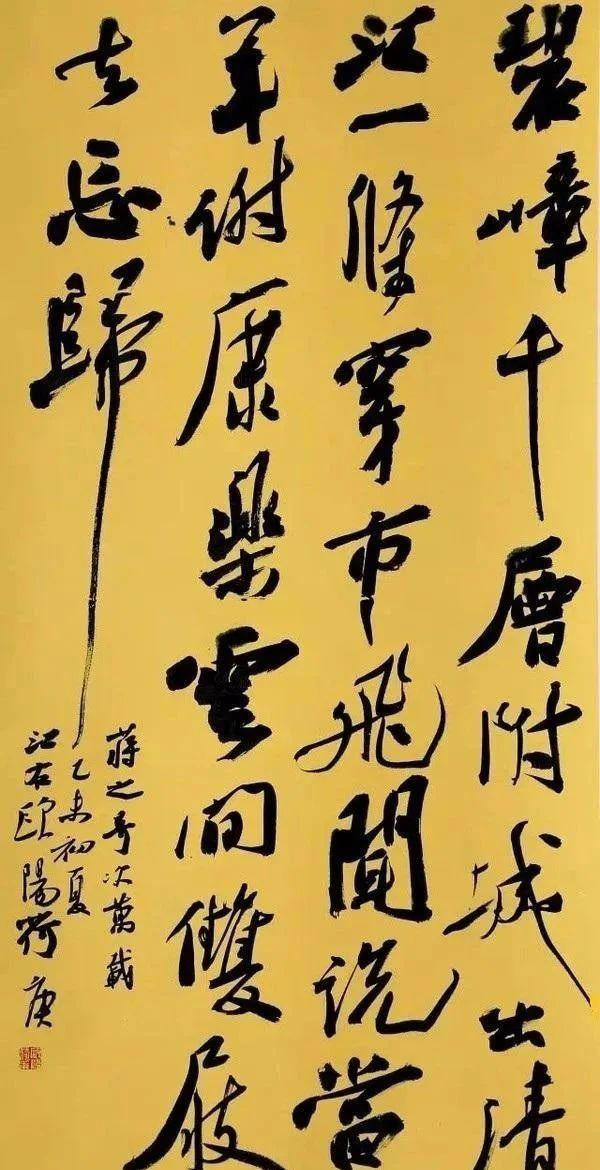 碧嶂千層附城出清
江一條穿市飛聞說當
年謝康樂雲間雙屐
去忘歸
蔣之奇次萬載
乙未初夏
江右歐陽荷庚